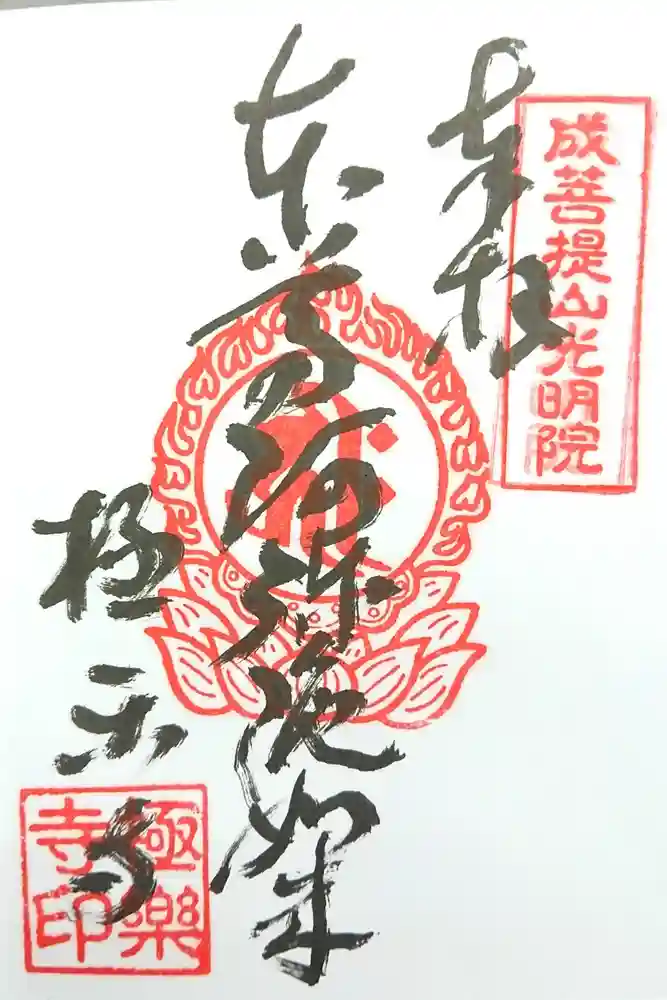 奉拝
成菩提山光明院
本尊阿弥陀如来
極楽寺
極樂
寺印